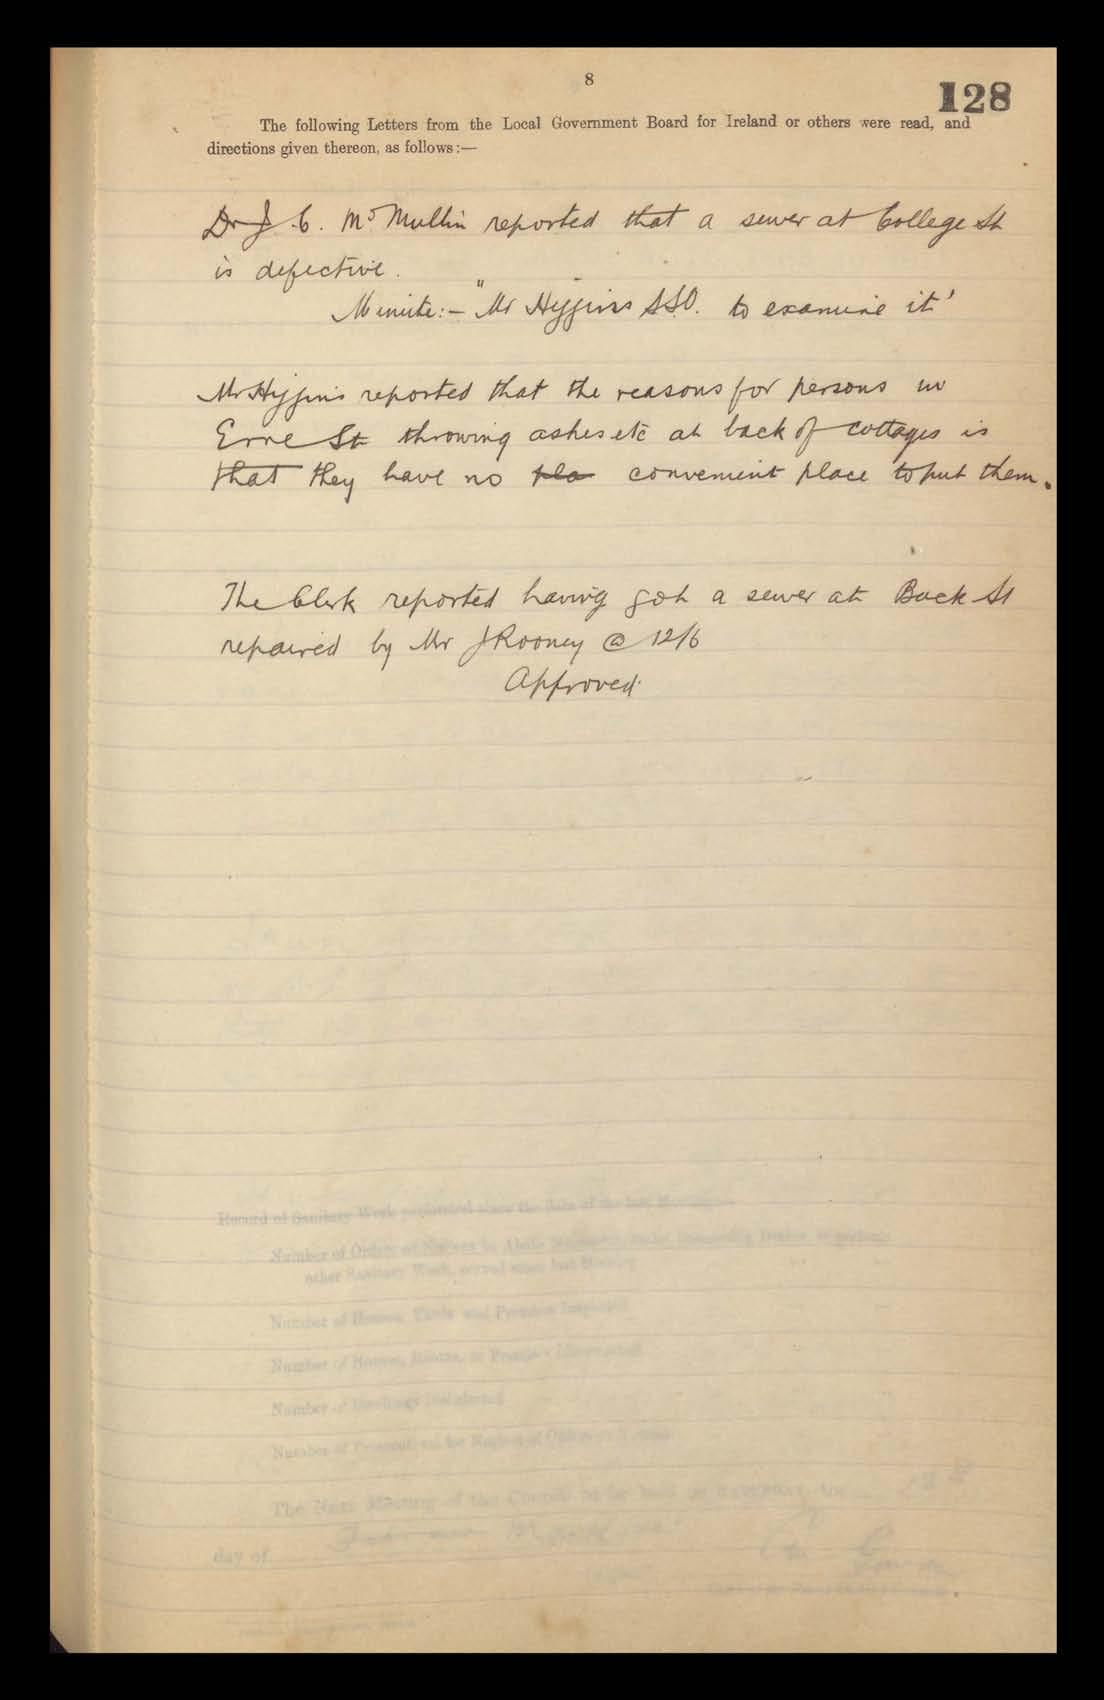 8
128
The following Letters from the Local Government Board for Ireland or others were read, and
directions given thereon, as follows :—
Dr J. C. McMullin reported that a sewer at College St
is defective.
Minute:- "Mr Higgins S.S.O. to examine it'
Mr Higgins reported that the reasons for persons in
Erne St throwing ashes etc at back of cottages is
that they have no pla convenient place to put them.
The Clerk reported having got a sewer at Back St
repaired by Mr J Rooney @ 12/6
Approved.